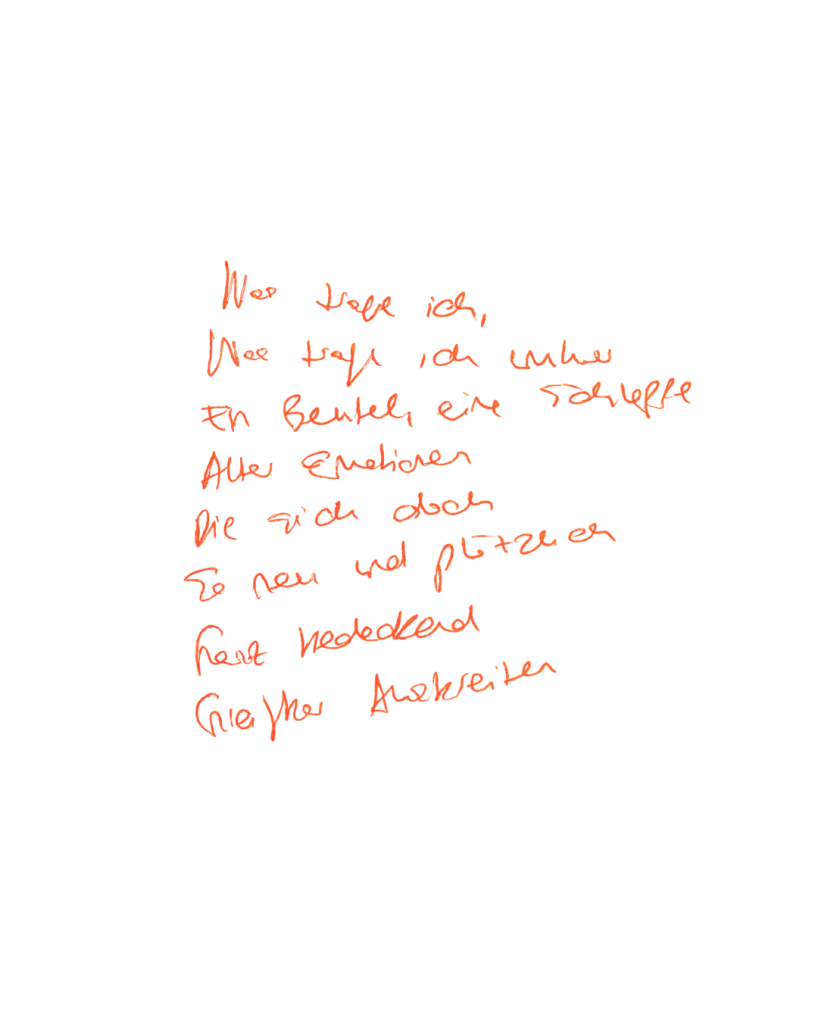 Was trage ich,
Was trage ich umher
Ein Beutel, eine Schleppe
Alter Emotionen
Die sich doch
So neu und plötzlich
Ganz
Ausbreiten